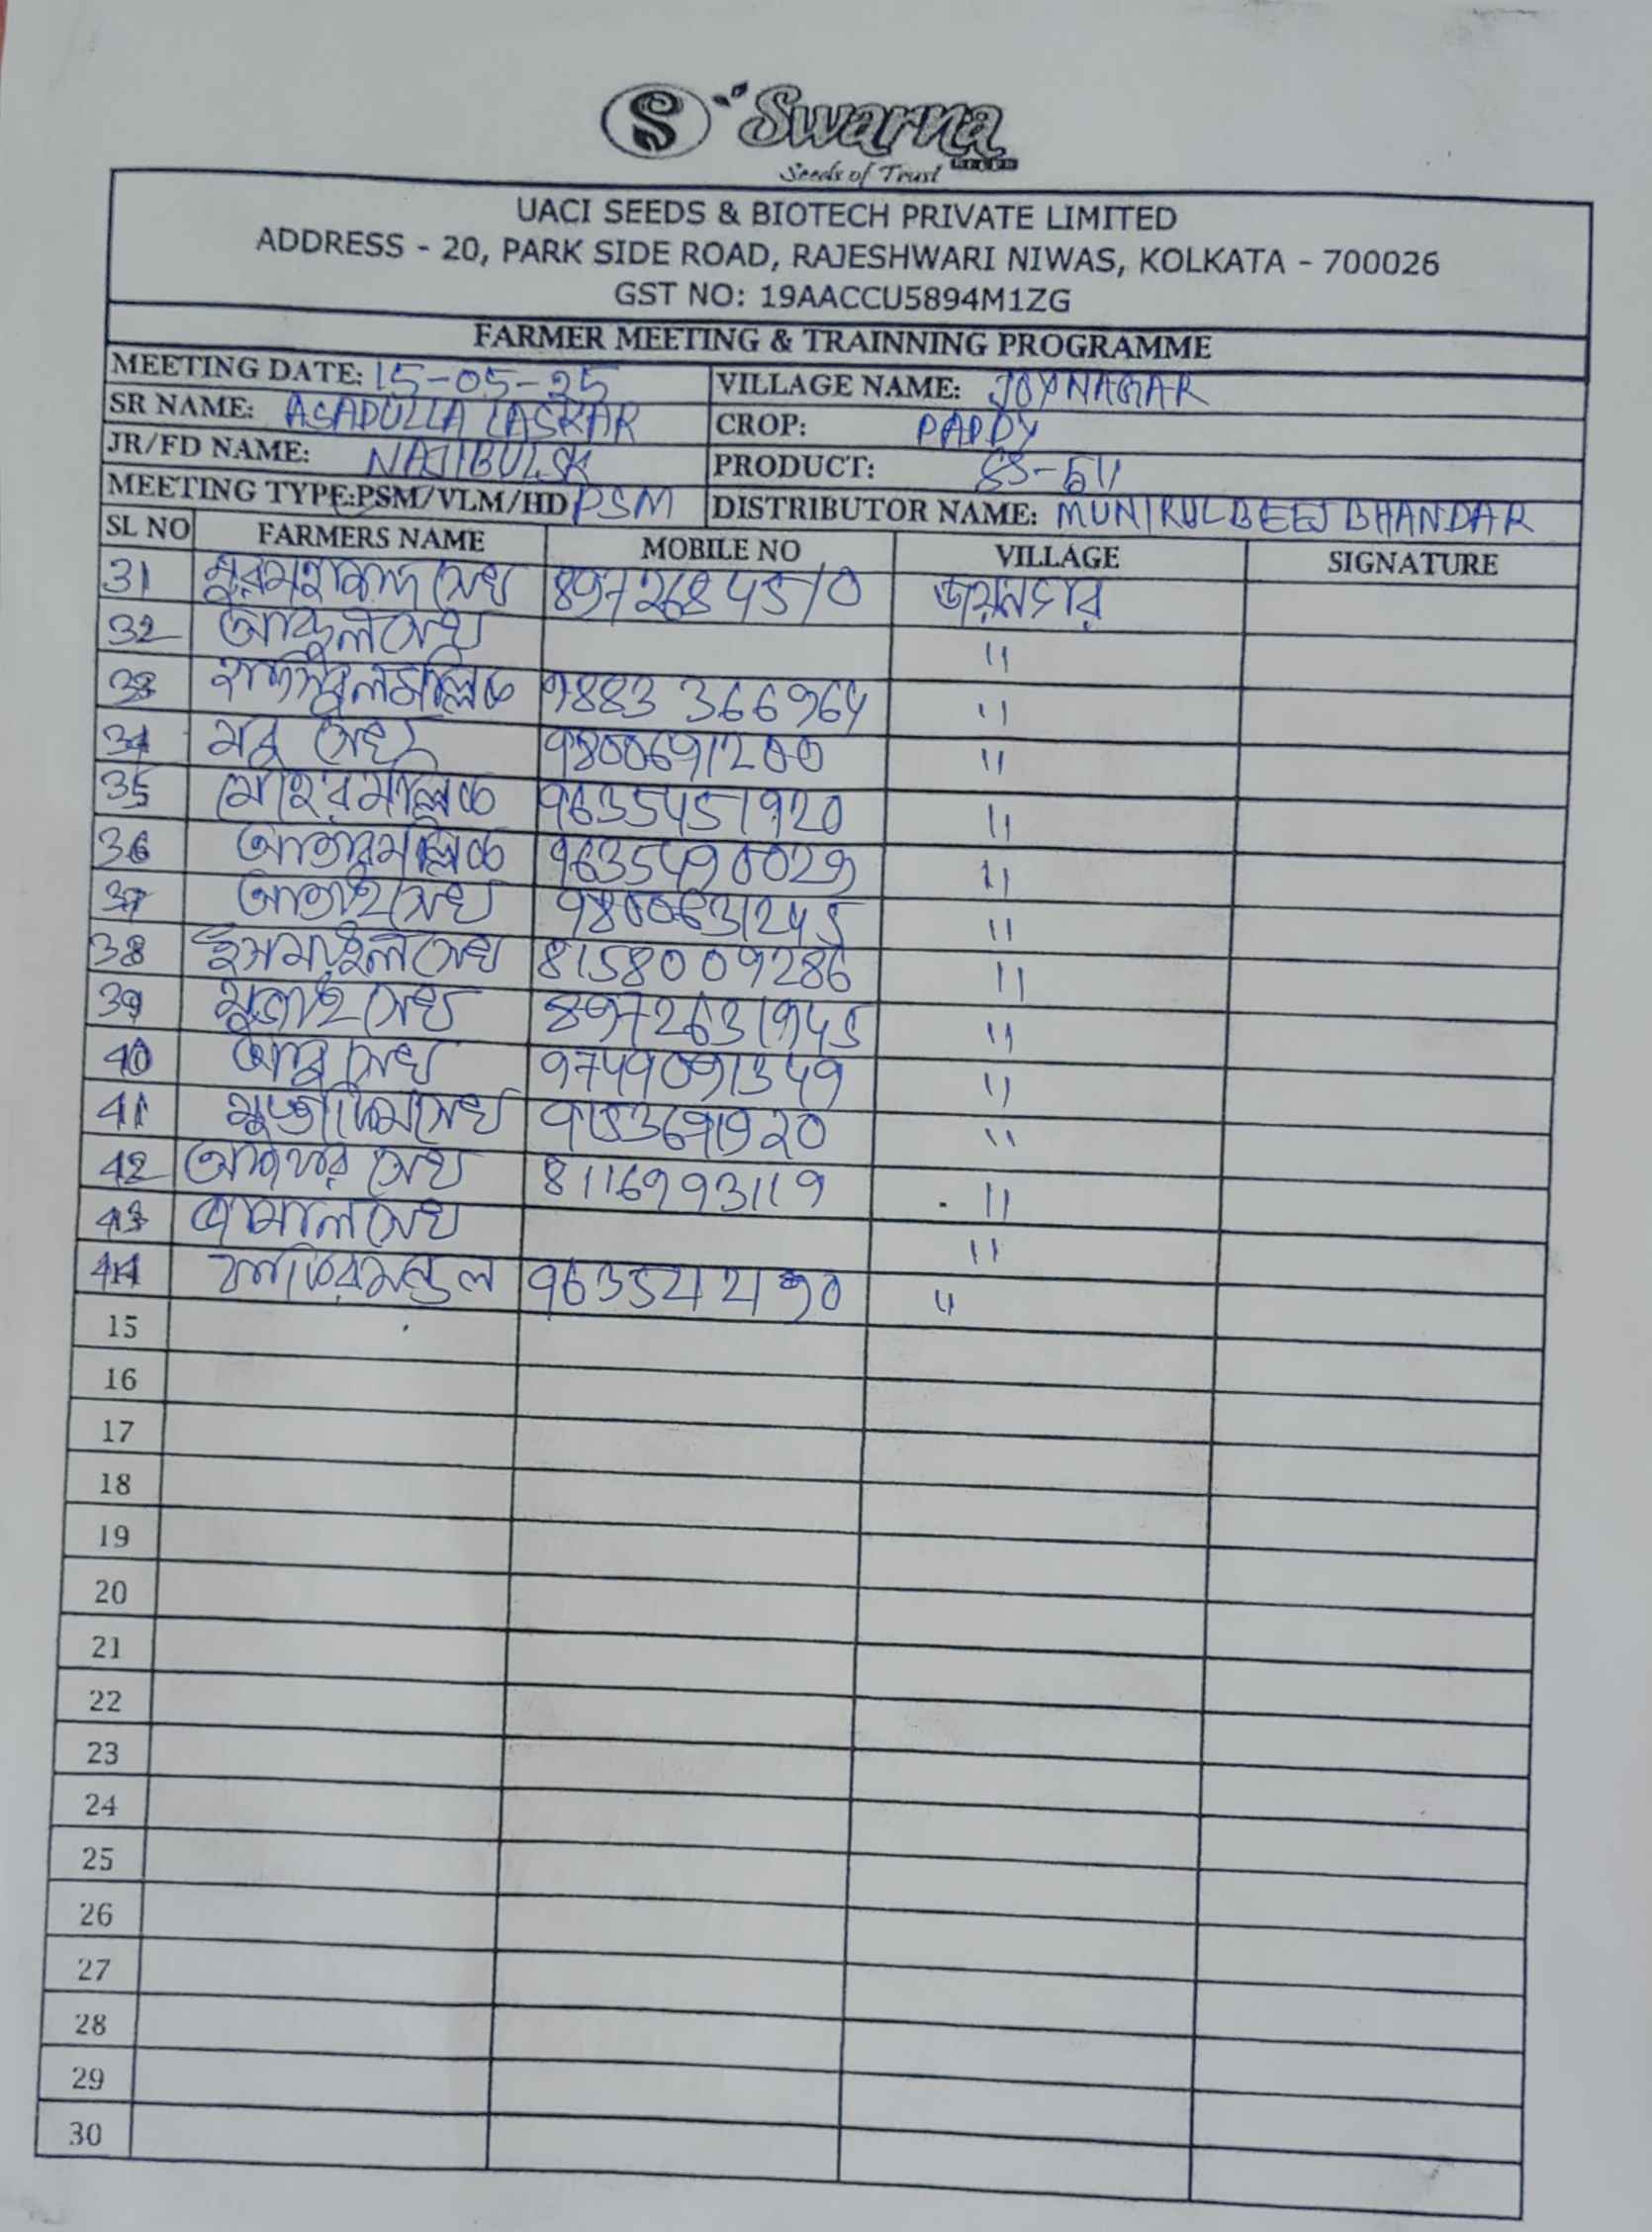 S Swarna
Seeds of Trust
UACI SEEDS & BIOTECH PRIVATE LIMITED
ADDRESS - 20, PARK SIDE ROAD, RAJESHWARI NIWAS, KOLKATA - 700026
GST NO: 19AACCU5894M1ZG
FARMER MEETING & TRAINNING PROGRAMME
MEETING DATE: 15-05-25 VILLAGE NAME: JOYNAGAR
SR NAME: ASADULLA LASKAR CROP: PADDY
JR/FD NAME: NAJIBUL SK PRODUCT:
MEETING TYPE:PSM/VLM/HD PSM DISTRIBUTOR NAME: MUNIRUL BEEJ BHANDAR
SL NO FARMERS NAME MOBILE NO VILLAGE SIGNATURE
31 সেখ 8972684510 জয়নগর
32 সেখ "
33 মল্লিক 9883 366964 "
34 সেখ 9800691200 "
35 মেহের মল্লিক 9635451920 "
36 আতার মল্লিক 9635490029 "
37 আতাই সেখ 9800631245 "
38 ইসমাইল সেখ 8158009286 "
39 মুজাই সেখ 8972631945 "
40 আবু সেখ 9749091349 "
41 সেখ "
42 সেখ 8116993119 "
43 জামাল সেখ "
44 মন্ডল "
15
16
17
18
19
20
21
22
23
24
25
26
27
28
29
30